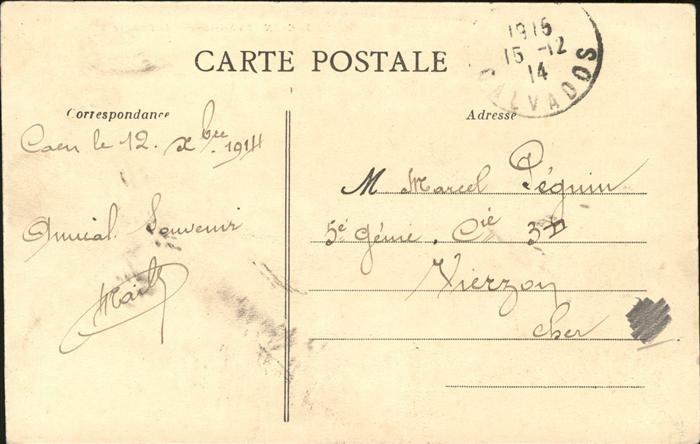 CARTE POSTALE
1915
15 -12
14
CALVADOS
Correspondance
Caen le 12. Xbre 1914
Amical Souvenir
Adresse
M Marcel Péguin
5e Génie. Cie
Vierzon
Cher